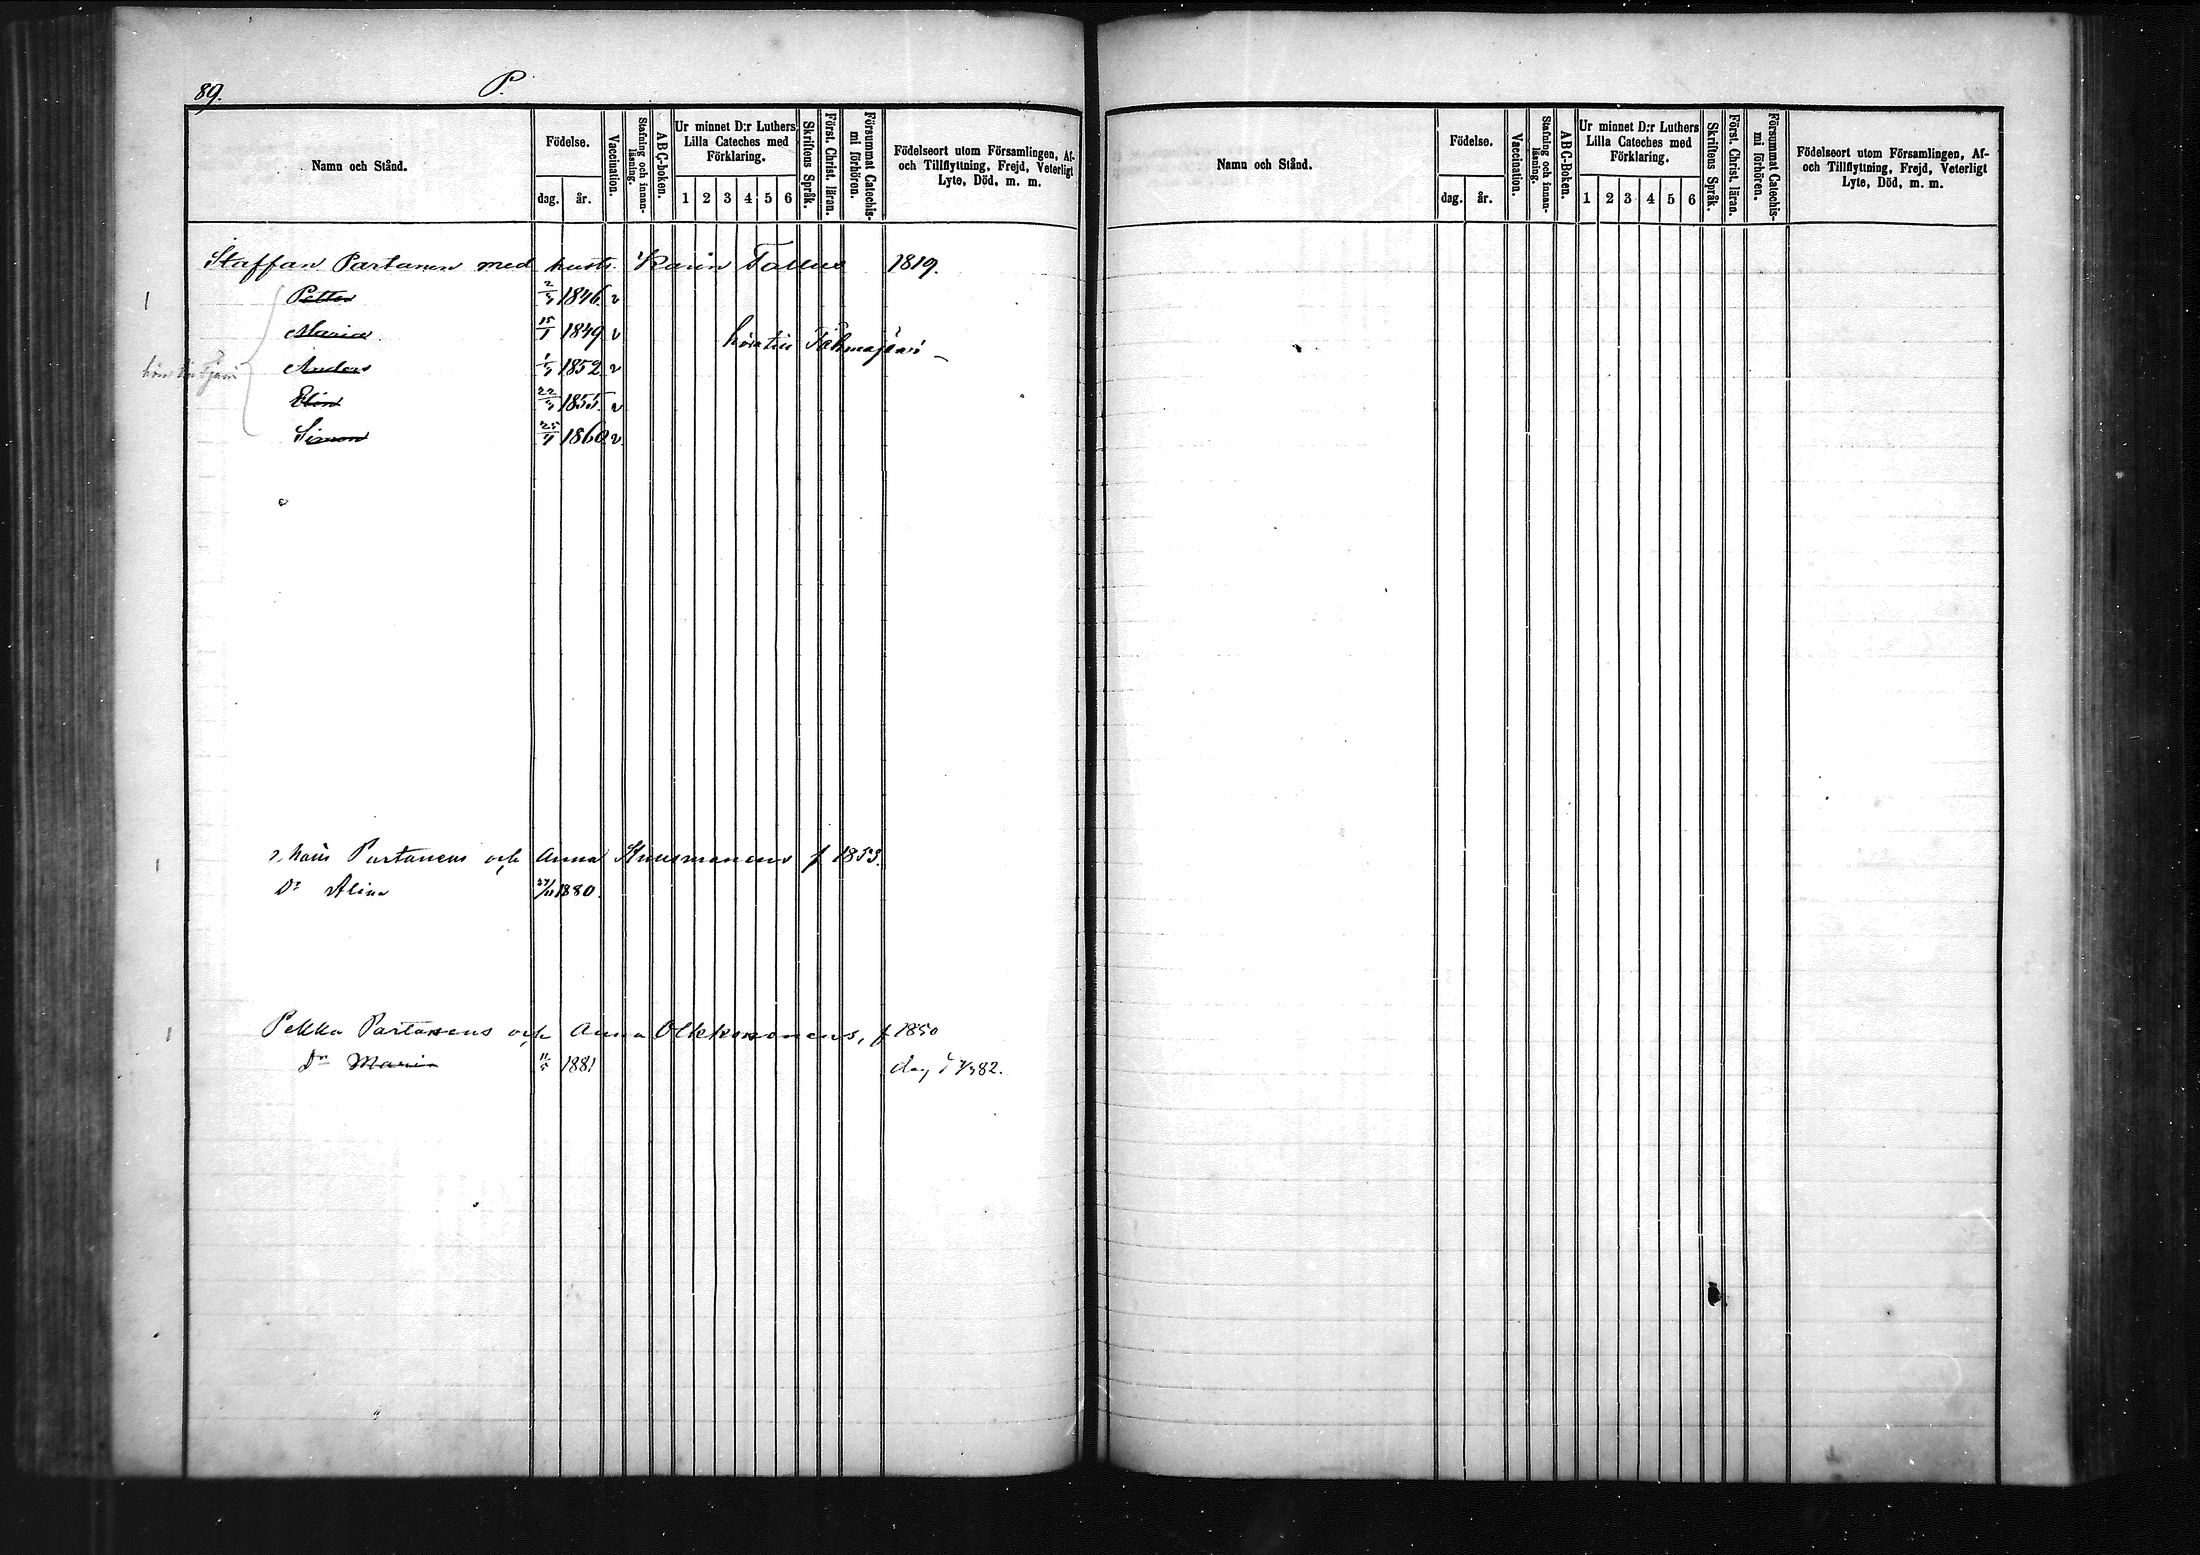 89. P.
Namn och Stånd. Födelse. dag. år. Vaccination. Stafning och innanläsning. ABC-boken. Ur minnet D:r Luthers Lilla Cateches med Förklaring. 1 2 3 4 5 6 Skriftens Språk. Först. Christ. läran. Försummat Catechismi förhören. Födelseort utom Församlingen, Af- och Tillflyttning, Frejd, Veterligt Lyte, Död, m. m.
Staffan Partanen med hustr. Karin Tallus 1819.
Petter 2/3 1846 v
Maria 15/1 1849 v
Anders 1/3 1852 v
Elin 22/3 1855 v
Simon 25/4 1860 v
Partanens och Anna Kuusmanens f 1853.
Dr Alina 1880.
Pekka Partanens och Anna Olkkonens, f 1850
Dr Maria 11/5 1881 82.
Namn och Stånd. Födelse. dag. år. Vaccination. Stafning och innanläsning. ABC-Boken. Ur minnet D:r Luthers Lilla Cateches med Förklaring. 1 2 3 4 5 6 Skriftens Språk. Först. Christ. läran. Försummat Catechismi förhören. Födelseort utom Församlingen, Af- och Tillflyttning, Frejd, Veterligt Lyte, Död, m. m.